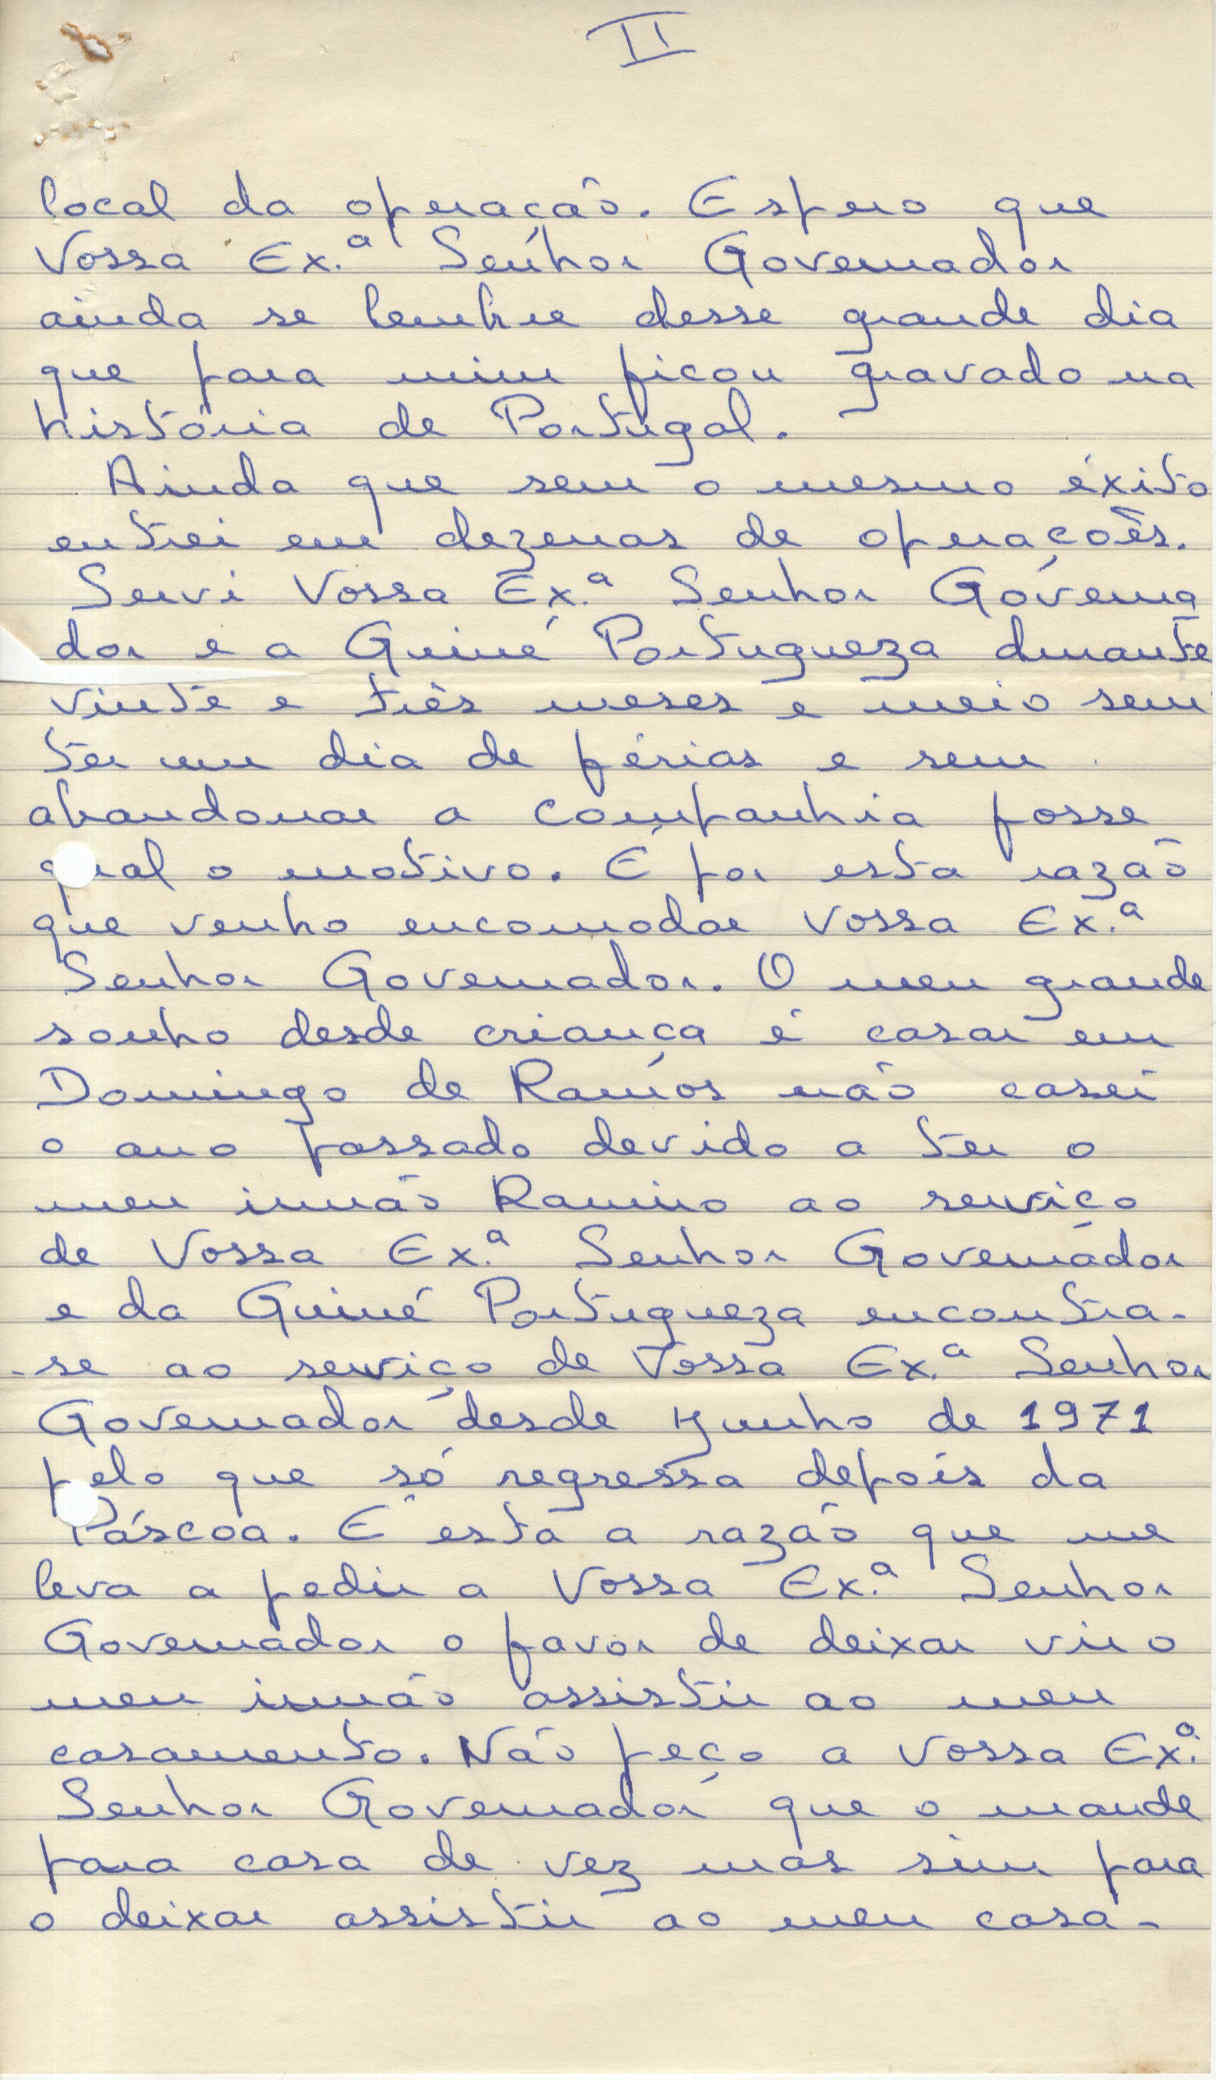 II
local da operação. Espero que
Vossa Ex.ª Senhor Governador
ainda se lembre desse grande dia
que para mim ficou gravado na
história de Portugal.
Ainda que sem o mesmo éxito
entrei em dezenas de operações.
Servi Vossa Ex.ª Senhor Governa
dor e a Guiné Portugueza durante
vinte e três meses e meio sem
ter um dia de férias e sem
abandonar a companhia fosse
qual o motivo. É por esta razão
que venho encomodar Vossa Ex.ª
Senhor Governador. O meu grande
sonho desde criança é casar em
Domingo de Ramos não casei
o ano passado devido a ter o
meu irmão Ramiro ao serviço
de Vossa Ex.ª Senhor Governador
e da Guiné Portugueza encontra-
-se ao serviço de Vossa Ex.ª Senhor
Governador desde Junho de 1971
pelo que só regressa depois da
Páscoa. É esta a razão que me
leva a pedir a Vossa Ex.ª Senhor
Governador o favor de deixar vir o
meu irmão assistir ao meu
casamento. Não peço a Vossa Ex.ª
Senhor Governador que o mande
para casa de vez mas sim para
o deixar assistir ao meu casa-